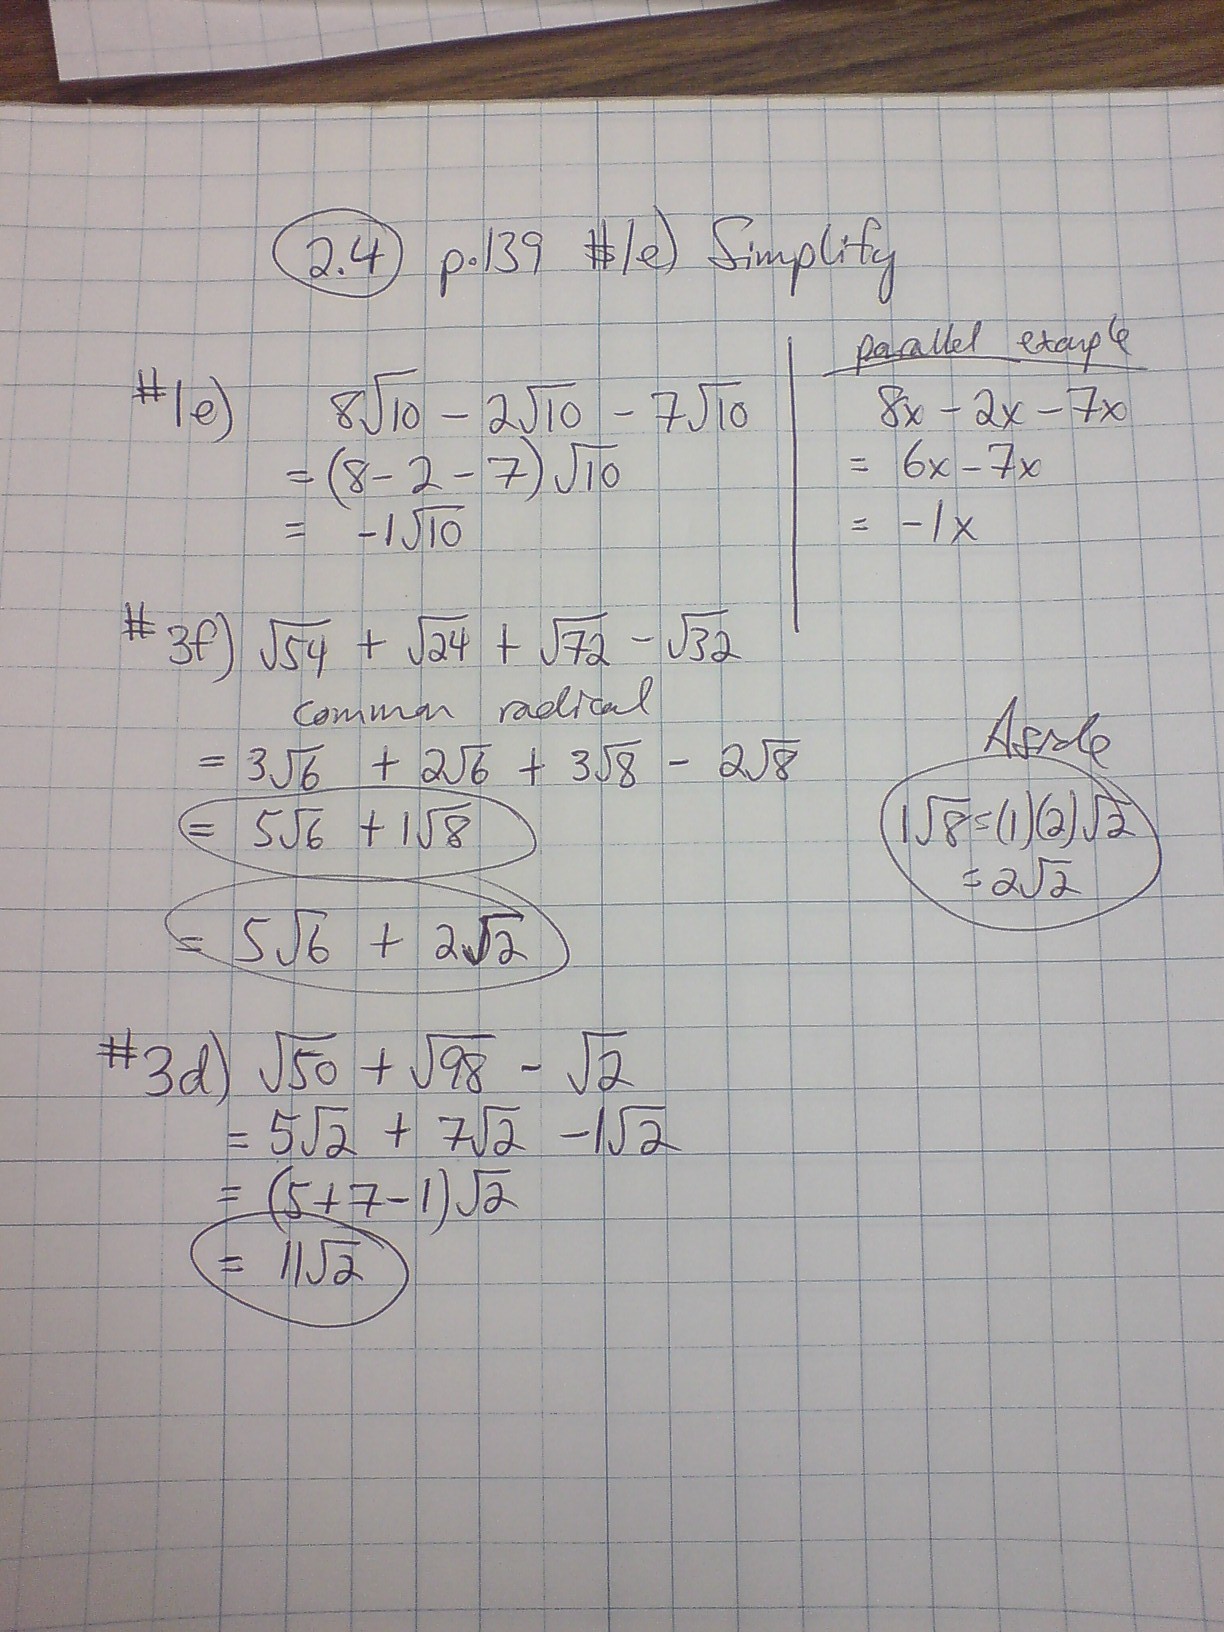 2.4 p.139 #1e) Simplify
#1e) 8√10 - 2√10 - 7√10
= (8-2-7)√10
= -1√10
parallel example
8x - 2x - 7x
= 6x - 7x
= -1x
#3f) √54 + √24 + √72 - √32
common radical
= 3√6 + 2√6 + 3√8 - 2√8
= 5√6 + 1√8
= 5√6 + 2√2
Aside
1√8 = (1)(2)√2
= 2√2
#3d) √50 + √98 - √2
= 5√2 + 7√2 - 1√2
= (5+7-1)√2
= 11√2